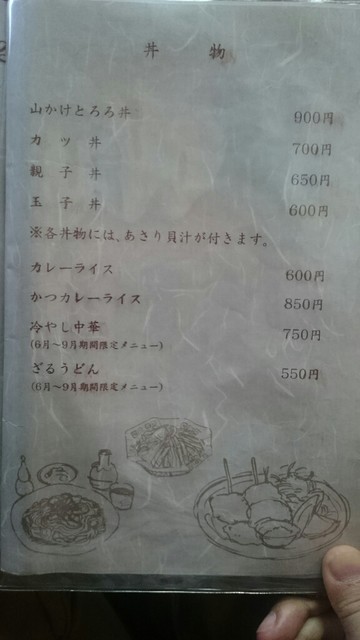 丼 物
山かけとろろ丼 900円
カツ丼 700円
親子丼 650円
玉子丼 600円
※各丼物には、あさり貝汁が付きます。
カレーライス 600円
かつカレーライス 850円
冷やし中華 750円
(6月〜9月期間限定メニュー)
ざるうどん 550円
(6月〜9月期間限定メニュー)